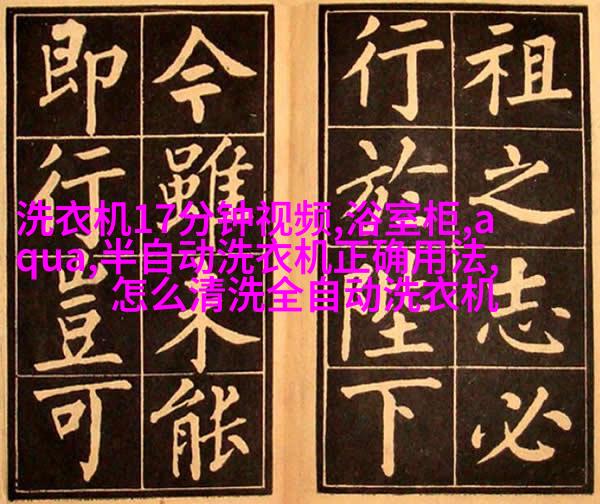 祖之志必
行於陛下
今雖未能
即行豈可
洗衣机17分钟视频,浴室柜,a
qua,半自动洗衣机正确用法,
怎么清洗全自动洗衣机